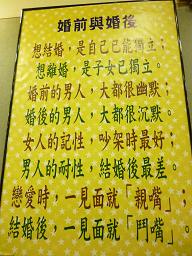 婚前與婚後
想結婚，是自己已能獨立；
想離婚，是子女已獨立。
婚前的男人，大都很幽默；
婚後的男人，大都很沉默。
女人的記性，吵架時最好；
男人的耐性，結婚後最差。
戀愛時，一見面就「親嘴」，
結婚後，一見面就「鬥嘴」。